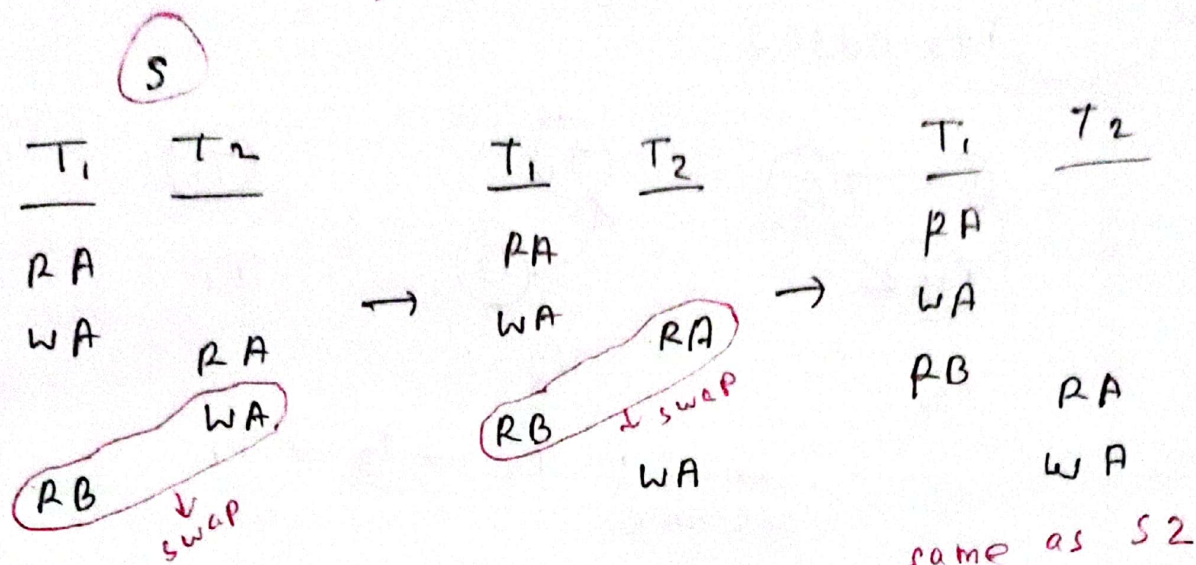 S
T1 T2
RA
WA
RA
WA
RB
swap
→
T1 T2
RA
WA
RA
RB
swap
WA
→
T1 T2
RA
WA
RB
RA
WA
same as S2